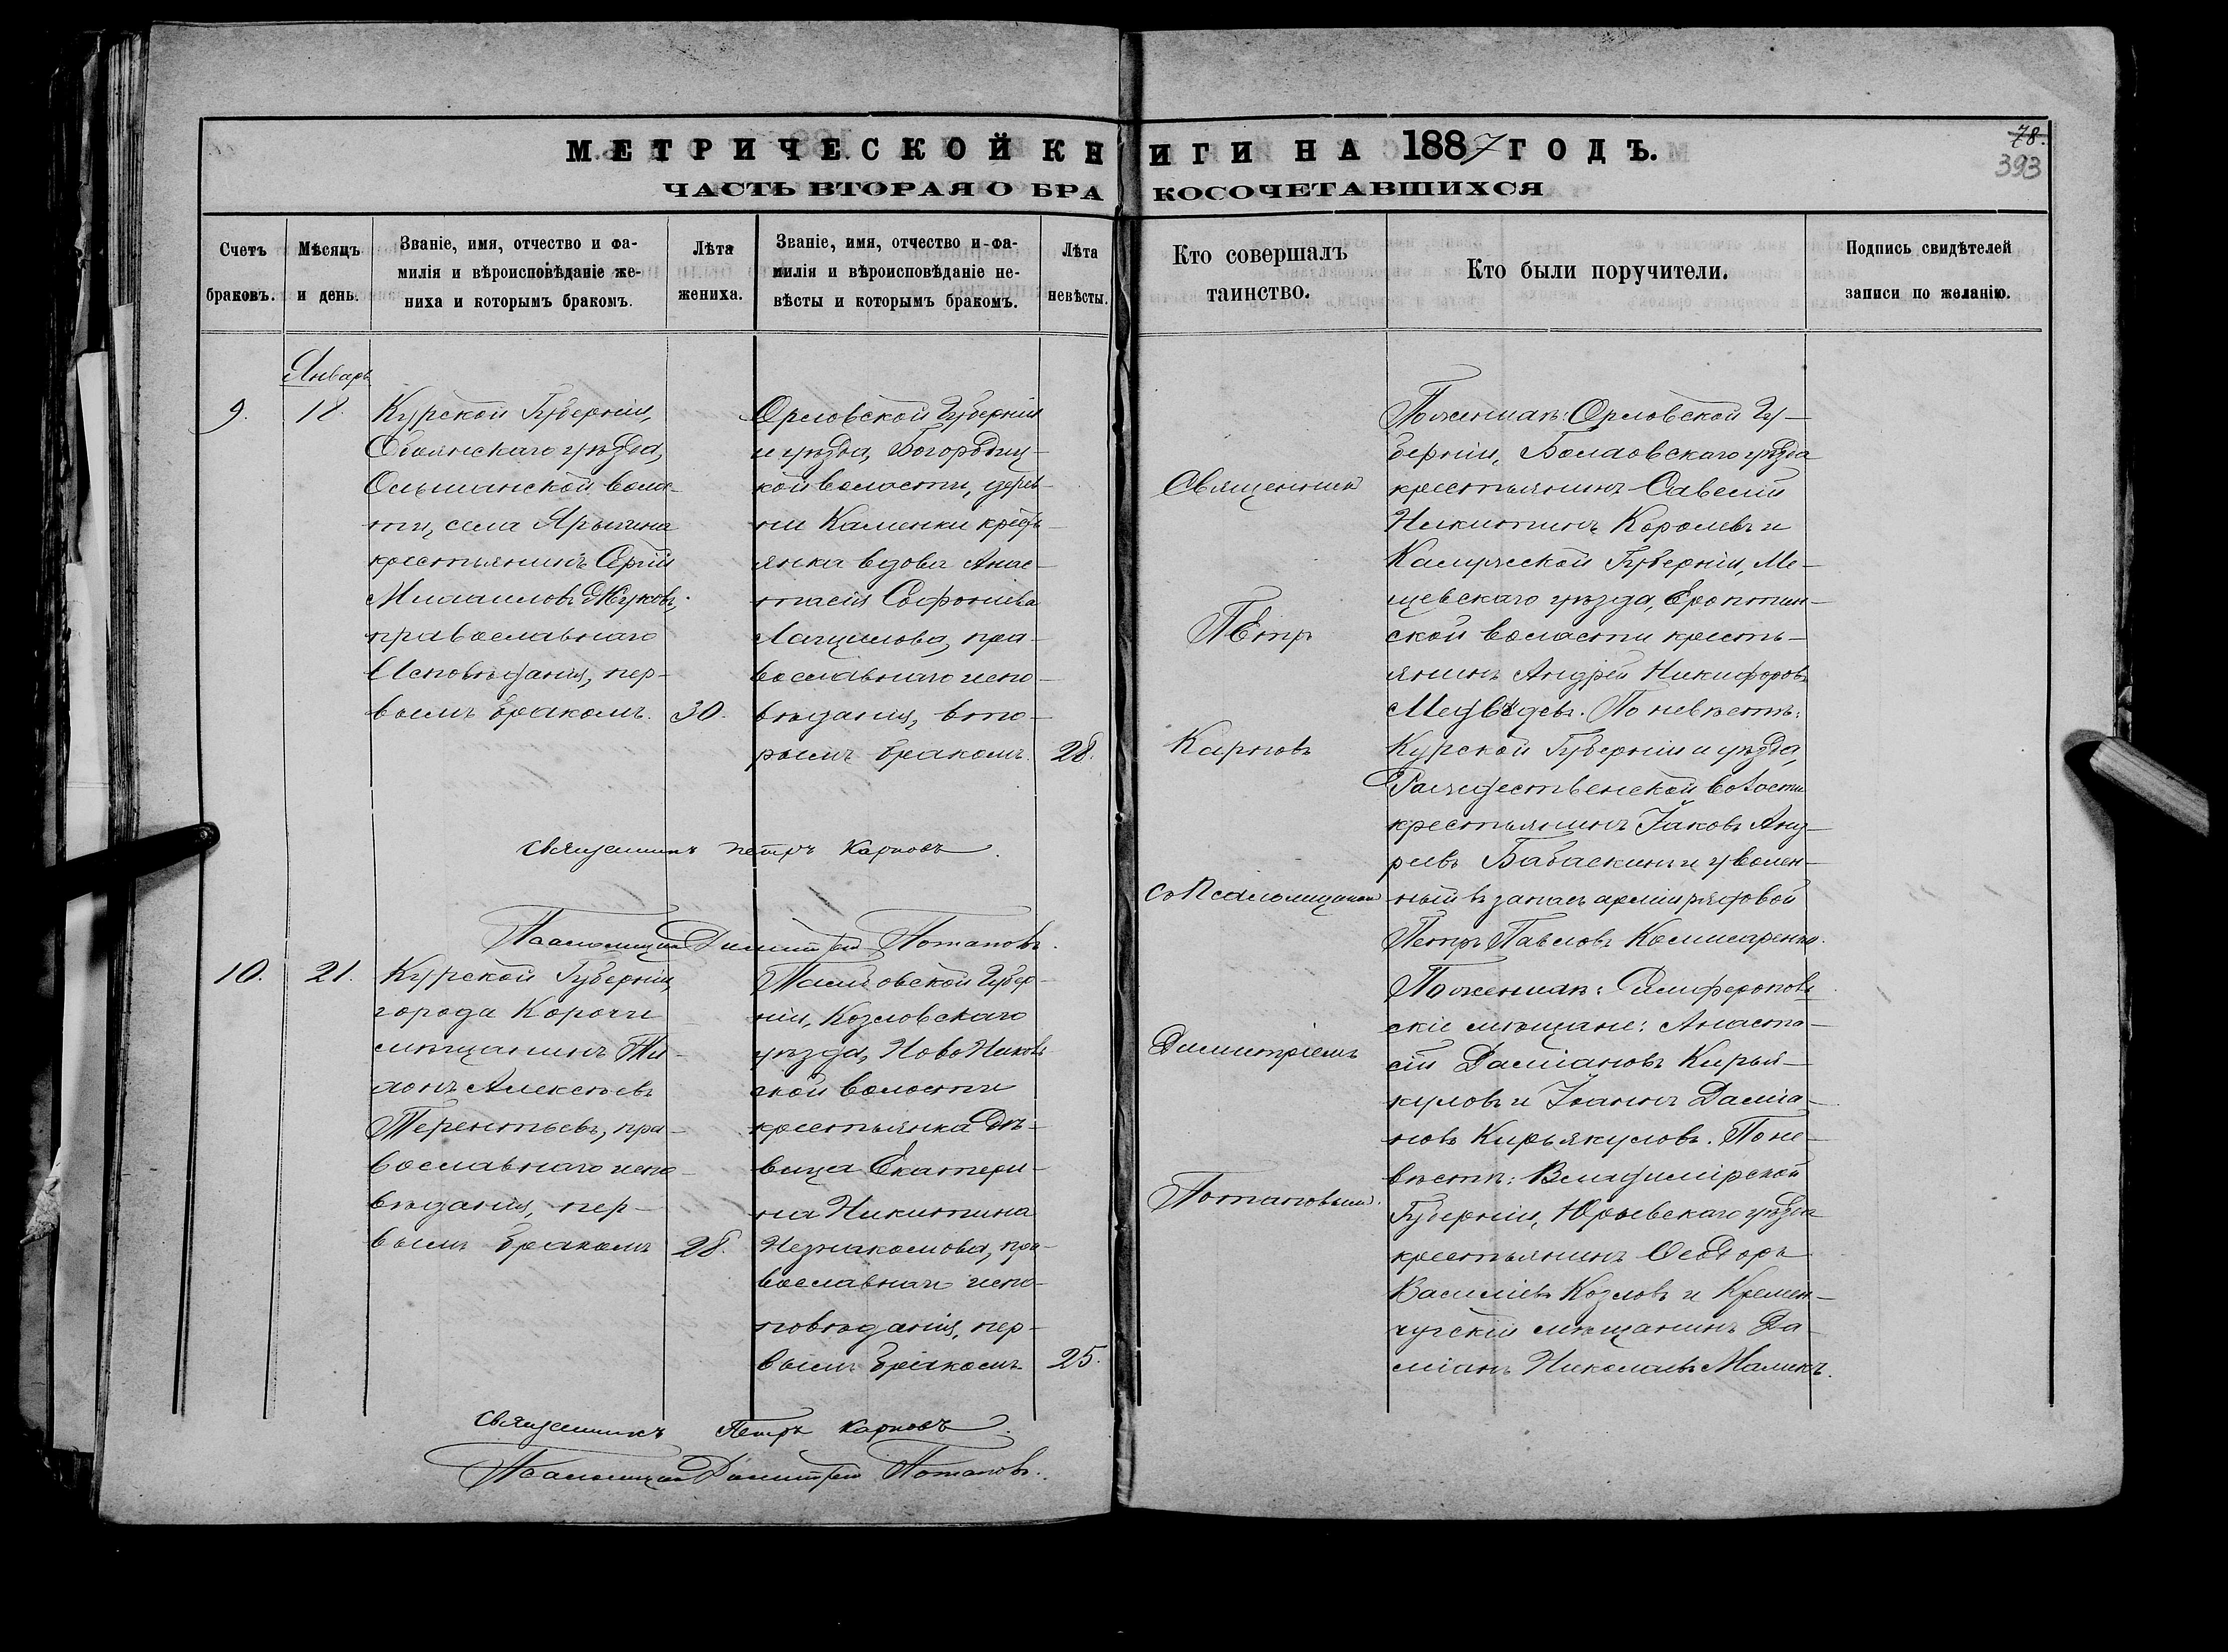 МЕТРИЧЕСКОЙ КНИГИ НА 1887 ГОДЪ.
78.
393
ЧАСТЬ ВТОРАЯ О БРАКОСОЧЕТАВШИХСЯ
Счетъ браковъ.
Мѣсяцъ и день.
Званіе, имя, отчество и фа-
милія и вѣроисповѣданіе же-
ниха и которымъ бракомъ.
Лѣта жениха.
Званіе, имя, отчество и фа-
милія и вѣроисповѣданіе не-
вѣсты и которымъ бракомъ.
Лѣта невѣсты.
Кто совершалъ
таинство.
Кто были поручители.
Подпись свидѣтелей
записи по желанію.
Январь
9.
18.
Курской Губерніи,
Обоянскаго уѣзда,
Ольшанской волос-
ти, села Ярыгина
крестьянинъ Сергій
Михаиловъ Жуковъ,
православнаго
Исповѣданія, пер-
вымъ бракомъ.
30.
Орловской Губерніи
и уѣзда, Богородиц-
кой волости, дерев-
ни Каменки крестъ-
янка вдова Анас-
тасія Софоніева
Лащилова, пра-
вославнаго испо-
вѣданія, вто-
рымъ бракомъ.
28.
Священникъ
Петръ
Карповъ
съ Псаломщикомъ
Димитріемъ
Потаповымъ.
По женихѣ: Орловской Гу-
берніи, Болховскаго уѣзда
крестьянинъ Савелій
Никитинъ Королевъ и
Калужской Губерніи, Ме-
щевскаго уѣзда,
ской волости кресть-
янинъ Андрей Никифоровъ
Медвѣдевъ. По невѣстѣ:
Курской Губерніи и уѣзда,
Рождественской волости
крестьянинъ Іаковъ Анд-
реевъ Бабаскинъ и уволен-
ный въ запасъ арміи рядовой
Петръ Павловъ Коммисаренко.
Священникъ Петръ Карповъ.
Псаломщикъ Димитрій Потаповъ.
10.
21.
Курской Губерніи,
города Корочи
мѣщанинъ Ти-
хонъ Алексѣевъ
Терентьевъ, пра-
вославнаго испо-
вѣданія, пер-
вымъ бракомъ
28.
Тамбовской Губер-
ніи, Козловскаго
уѣзда, Ново Никольс-
кой волости
крестьянка дѣ-
вица Екатери-
на Никитина
Незнакомова, пра-
вославнаго испо-
повѣданія, пер-
вымъ бракомъ
25.
По женихѣ: Симферополь-
скіе мѣщане: Анаста-
сій Даміановъ Кирья-
куловъ и Іоаннъ Даміа-
новъ Кирьякуловъ. По не-
вѣстѣ: Владимірской
Губерніи, Юрьевскаго уѣзда
крестьянинъ Ѳеодоръ
Василіевъ Козловъ и Кремен-
чугскій мѣщанинъ Да-
міанъ Николаевъ Маликъ.
Священникъ Петръ Карповъ.
Псаломщикъ Димитрій Потаповъ.